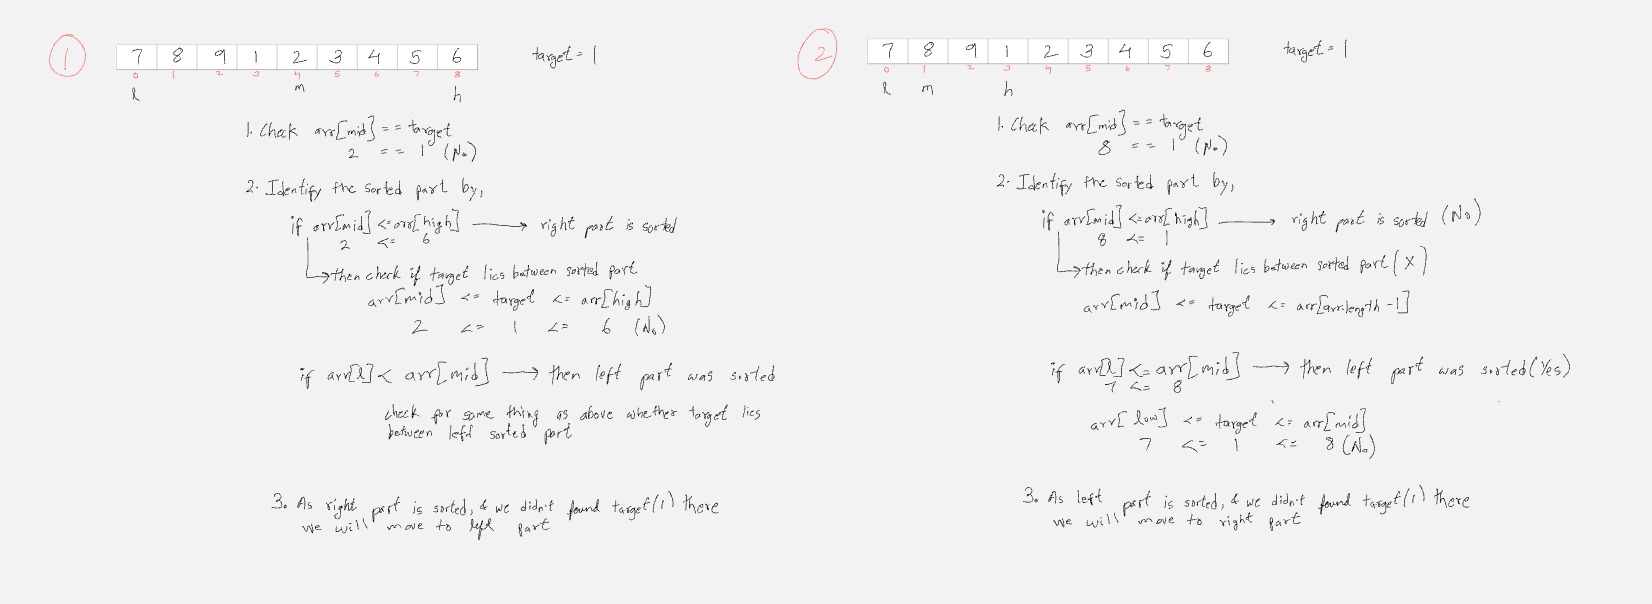 1
7 8 9 1 2 3 4 5 6 target = 1
0 1 2 3 4 5 6 7 8
l m h
1. Check arr[mid] == target
2 == 1 (No)
2. Identify the sorted part by,
if arr[mid] <= arr[high] → right part is sorted
2 <= 6
then check if target lies between sorted part
arr[mid] <= target <= arr[high]
2 <= 1 <= 6 (No)
if arr[l] < arr[mid] → then left part was sorted
check for same thing as above whether target lies
between left sorted part
3. As right part is sorted, & we didn't found target(1) there
we will move to left part
2
7 8 9 1 2 3 4 5 6 target = 1
0 1 2 3 4 5 6 7 8
l m h
1. Check arr[mid] == target
8 == 1 (No)
2. Identify the sorted part by,
if arr[mid] <= arr[high] → right part is sorted (No)
8 <= 1
then check if target lies between sorted part (X)
arr[mid] <= target <= arr[arr.length -1]
if arr[l] <= arr[mid] → then left part was sorted (Yes)
7 <= 8
arr[low] <= target <= arr[mid]
7 <= 1 <= 8 (No)
3. As left part is sorted, & we didn't found target(1) there
we will move to right part